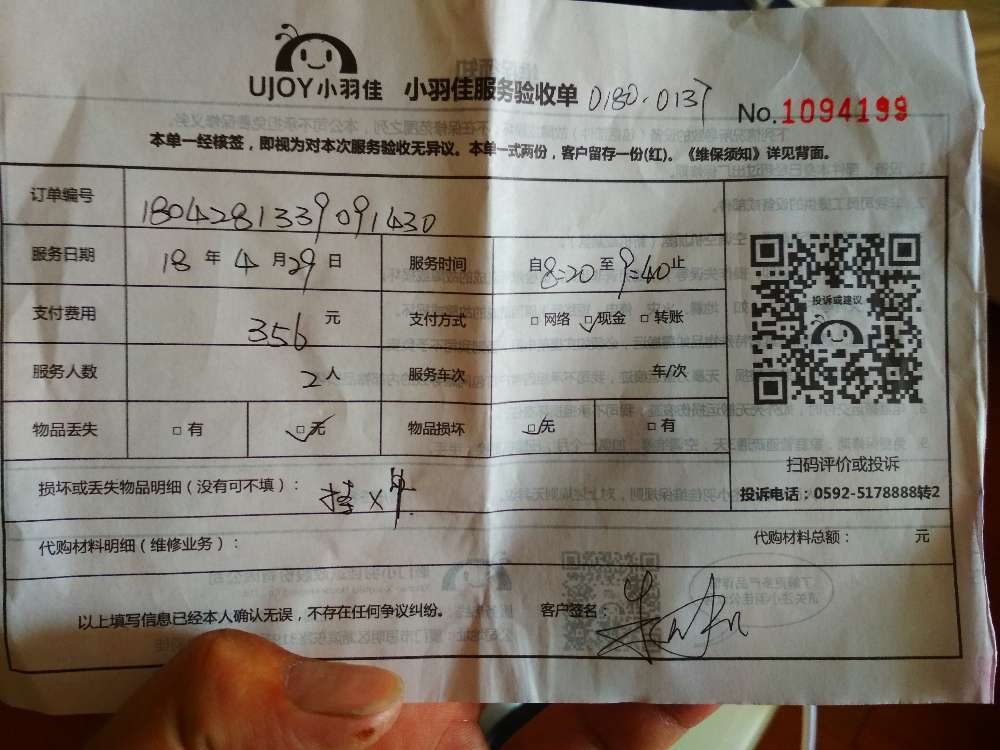 UJOY小羽佳 小羽佳服务验收单 0180.0137 No.1094199
本单一经核签，即视为对本次服务验收无异议。本单一式两份，客户留存一份(红)。《维保须知》详见背面。
订单编号 1804281339091430
服务日期 18 年 4 月 29 日 服务时间 自8:20 至 9:40止
支付费用 356 元 支付方式 □网络 □现金 □转账
服务人数 2人 服务车次 车/次
物品丢失 □有 □无 物品损坏 □无 □有
投诉或建议
扫码评价或投诉
投诉电话：0592-5178888转2
损坏或丢失物品明细（没有可不填）：
代购材料明细（维修业务）： 代购材料总额： 元
以上填写信息已经本人确认无误，不存在任何争议纠纷。 客户签名：